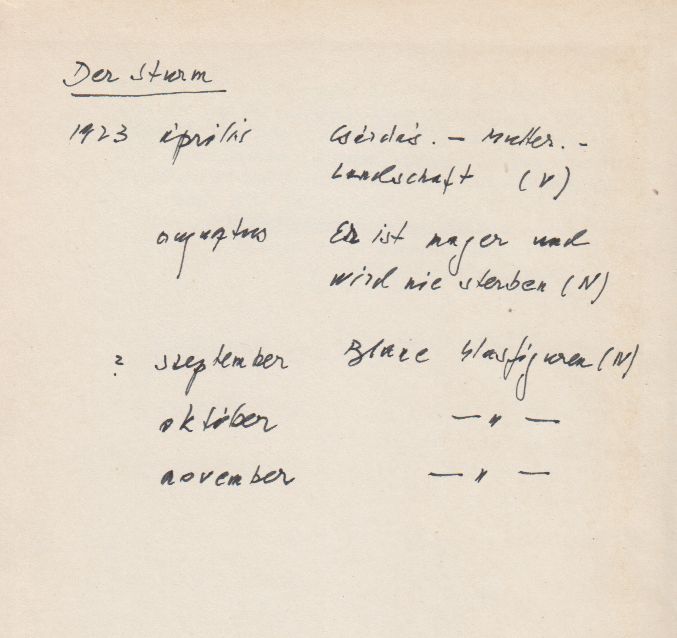 Der Sturm
1923 április Csárdás. – Mutter. –
Landschaft (V)
augusztus Er ist mager und
wird nie sterben (N)
? szeptember Blaue Glasfiguren (N)
október — " —
november — " —